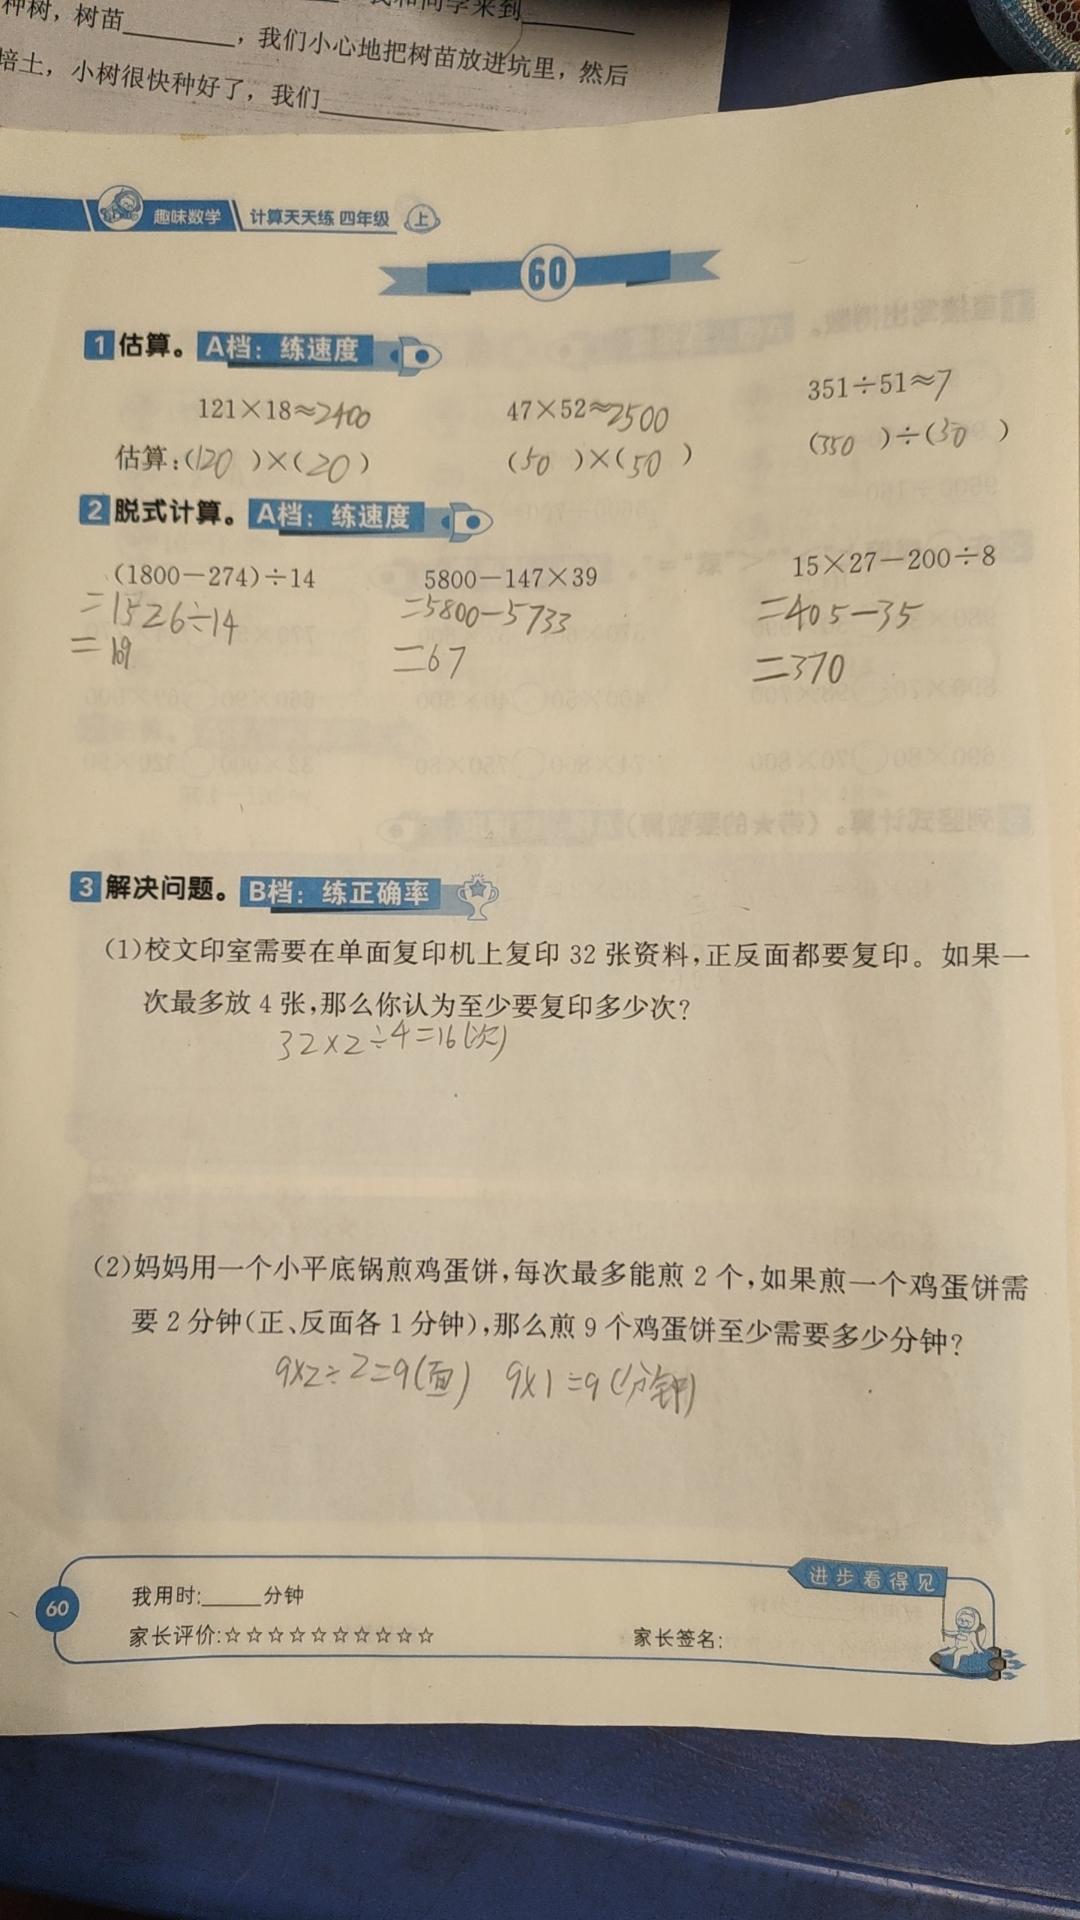 种树，树苗________，我们小心地把树苗放进坑里，然后
培土，小树很快种好了，我们________
趣味数学 计算天天练 四年级 上
60
1 估算。 A档：练速度
121×18≈2400 47×52≈2500 351÷51≈7
估算：(120)×(20) (50)×(50) (350)÷(50)
2 脱式计算。 A档：练速度
(1800－274)÷14 5800－147×39 15×27－200÷8
=1526÷14 =5800－5733 =405－35
=109 =67 =370
3 解决问题。 B档：练正确率
(1)校文印室需要在单面复印机上复印 32 张资料，正反面都要复印。如果一
次最多放 4 张，那么你认为至少要复印多少次？
32×2÷4=16(次)
(2)妈妈用一个小平底锅煎鸡蛋饼，每次最多能煎 2 个，如果煎一个鸡蛋饼需
要 2 分钟(正、反面各 1 分钟)，那么煎 9 个鸡蛋饼至少需要多少分钟？
9×2÷2=9(面) 9×1=9(分钟)
进步看得见
60
我用时:______分钟
家长评价:☆☆☆☆☆☆☆☆☆☆ 家长签名: